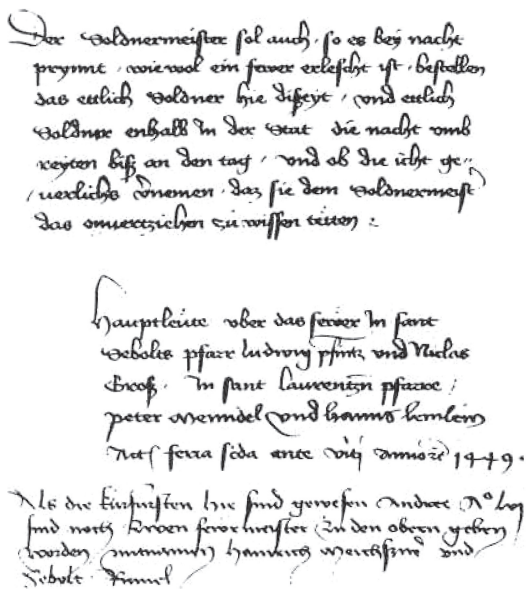 Der Soldnermeister sol auch, so es bey nacht
prynnt, wiewol ein fewer erlescht ist, bestellen
das ettlich Soldner hie diseyt, vnd ettlich
Soldner enhalb in der Stat die nacht vmb
reyten biß an den tag, vnd ob die icht ge„
uerlichs v̄nemen, daz sie dem Soldnermeist
das onuertziehen zu wissen tetten :
Hauptlewte vber das fewer In sant
Sebolts pfarr ludwig pfintz vnd Niclas
Groß. In sant laurentzn pfarre /
peter Menndel vnd hanns
Act feria scda ante viti anno 1449.
Als die kurfursten hie sind gewesen Andree Ao lvj
sind noch zween fewrmeister zu den obern geben
worden mitnamen Heinrich vnd
Sebolt Rumel